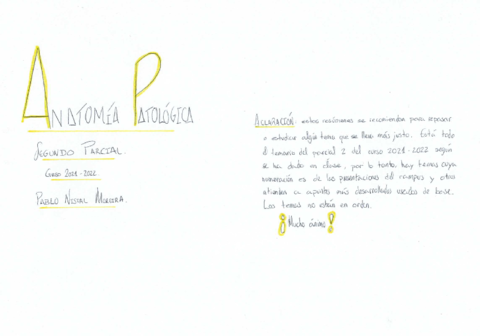 ANATOMÍA PATOLÓGICA
SEGUNDO PARCIAL
CURSO 2021-2022
PABLO
ACLARACIÓN: estos resúmenes se recomiendan para repasar
o estudiar algún tema que se lleve más justo. Está todo
el temario del parcial 2 del curso 2021-2022 según
se ha dado en clase, por lo tanto, hay temas cuya
numeración es de las presentaciones del campus y otros
atienden a apuntes más desarrollados usados de base.
Los temas no están en orden.
¡Mucho ánimo!